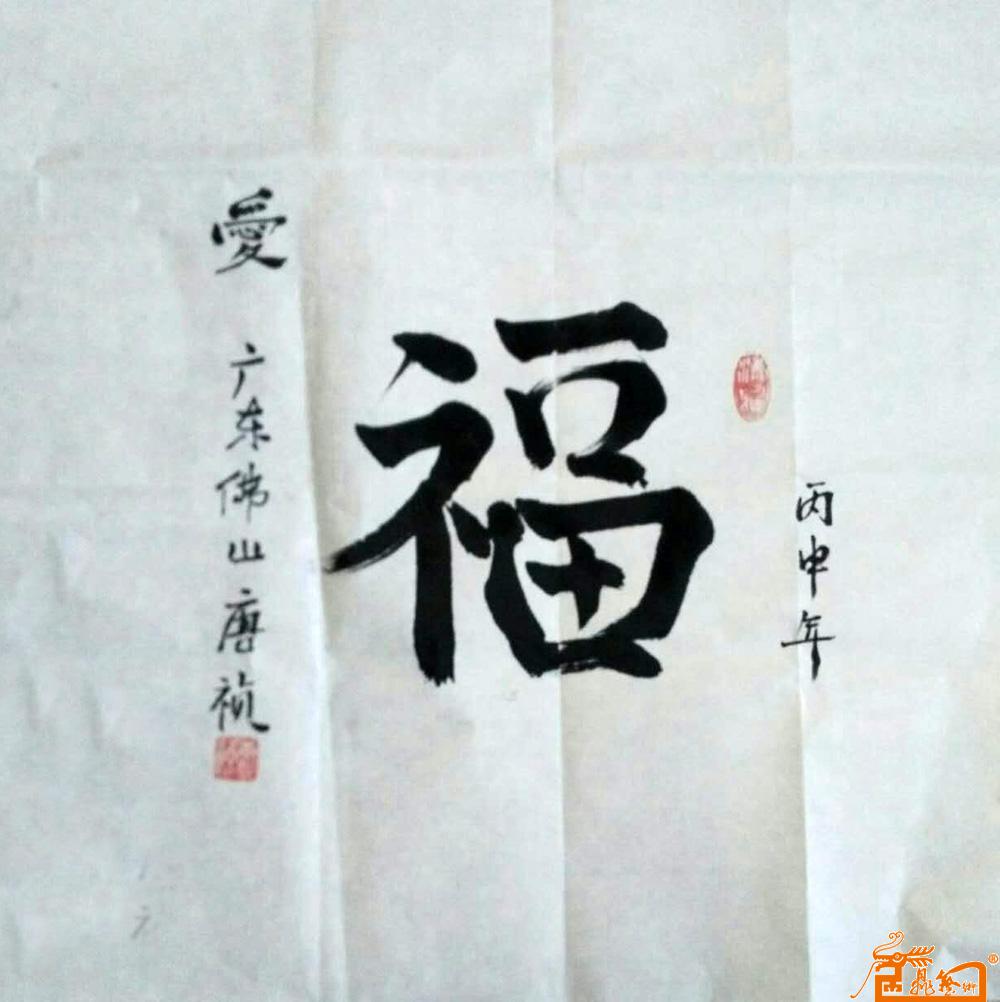 福
丙申年
愛
广东佛山唐祯